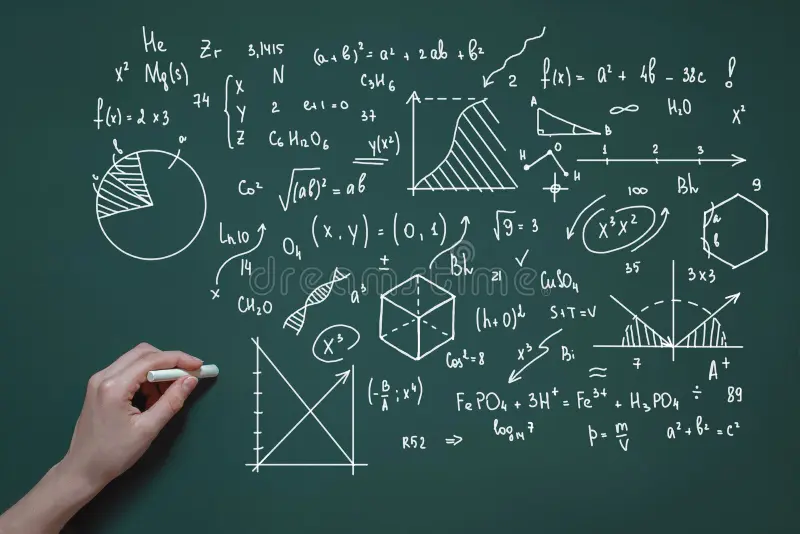 He
Zr
3,1415
(a+b)² = a² + 2ab + b²
x²
Mg(s)
N
C₃H₆
2
f(x) = a² + 4b - 38c !
f(x) = 2 x 3
74
X
Y
Z
2
e+1=0
37
A
B
∞
H₂O
x²
C₆H₁₂O₆
y(x²)
H
O
H
1 2 3
b
a
c
Co²
√(ab)² = ab
100
Bh
9
Ln10
14
x
O₄
(x, y) = (0, 1)
√9 = 3
x³x²
a
b
±
Bh
21
√
CuSO₄
35
3x3
CH₂O
a³
(h+0)²
S+T=V
x³
Cos²=8
x³
Bi
≈
7
A⁺
(-B/A ; x⁴)
FePO₄ + 3H⁺ = Fe³⁺ + H₃PO₄
÷
89
R52 =>
log₁₄7
p = m/V
a² + b² = c²
dreamstime